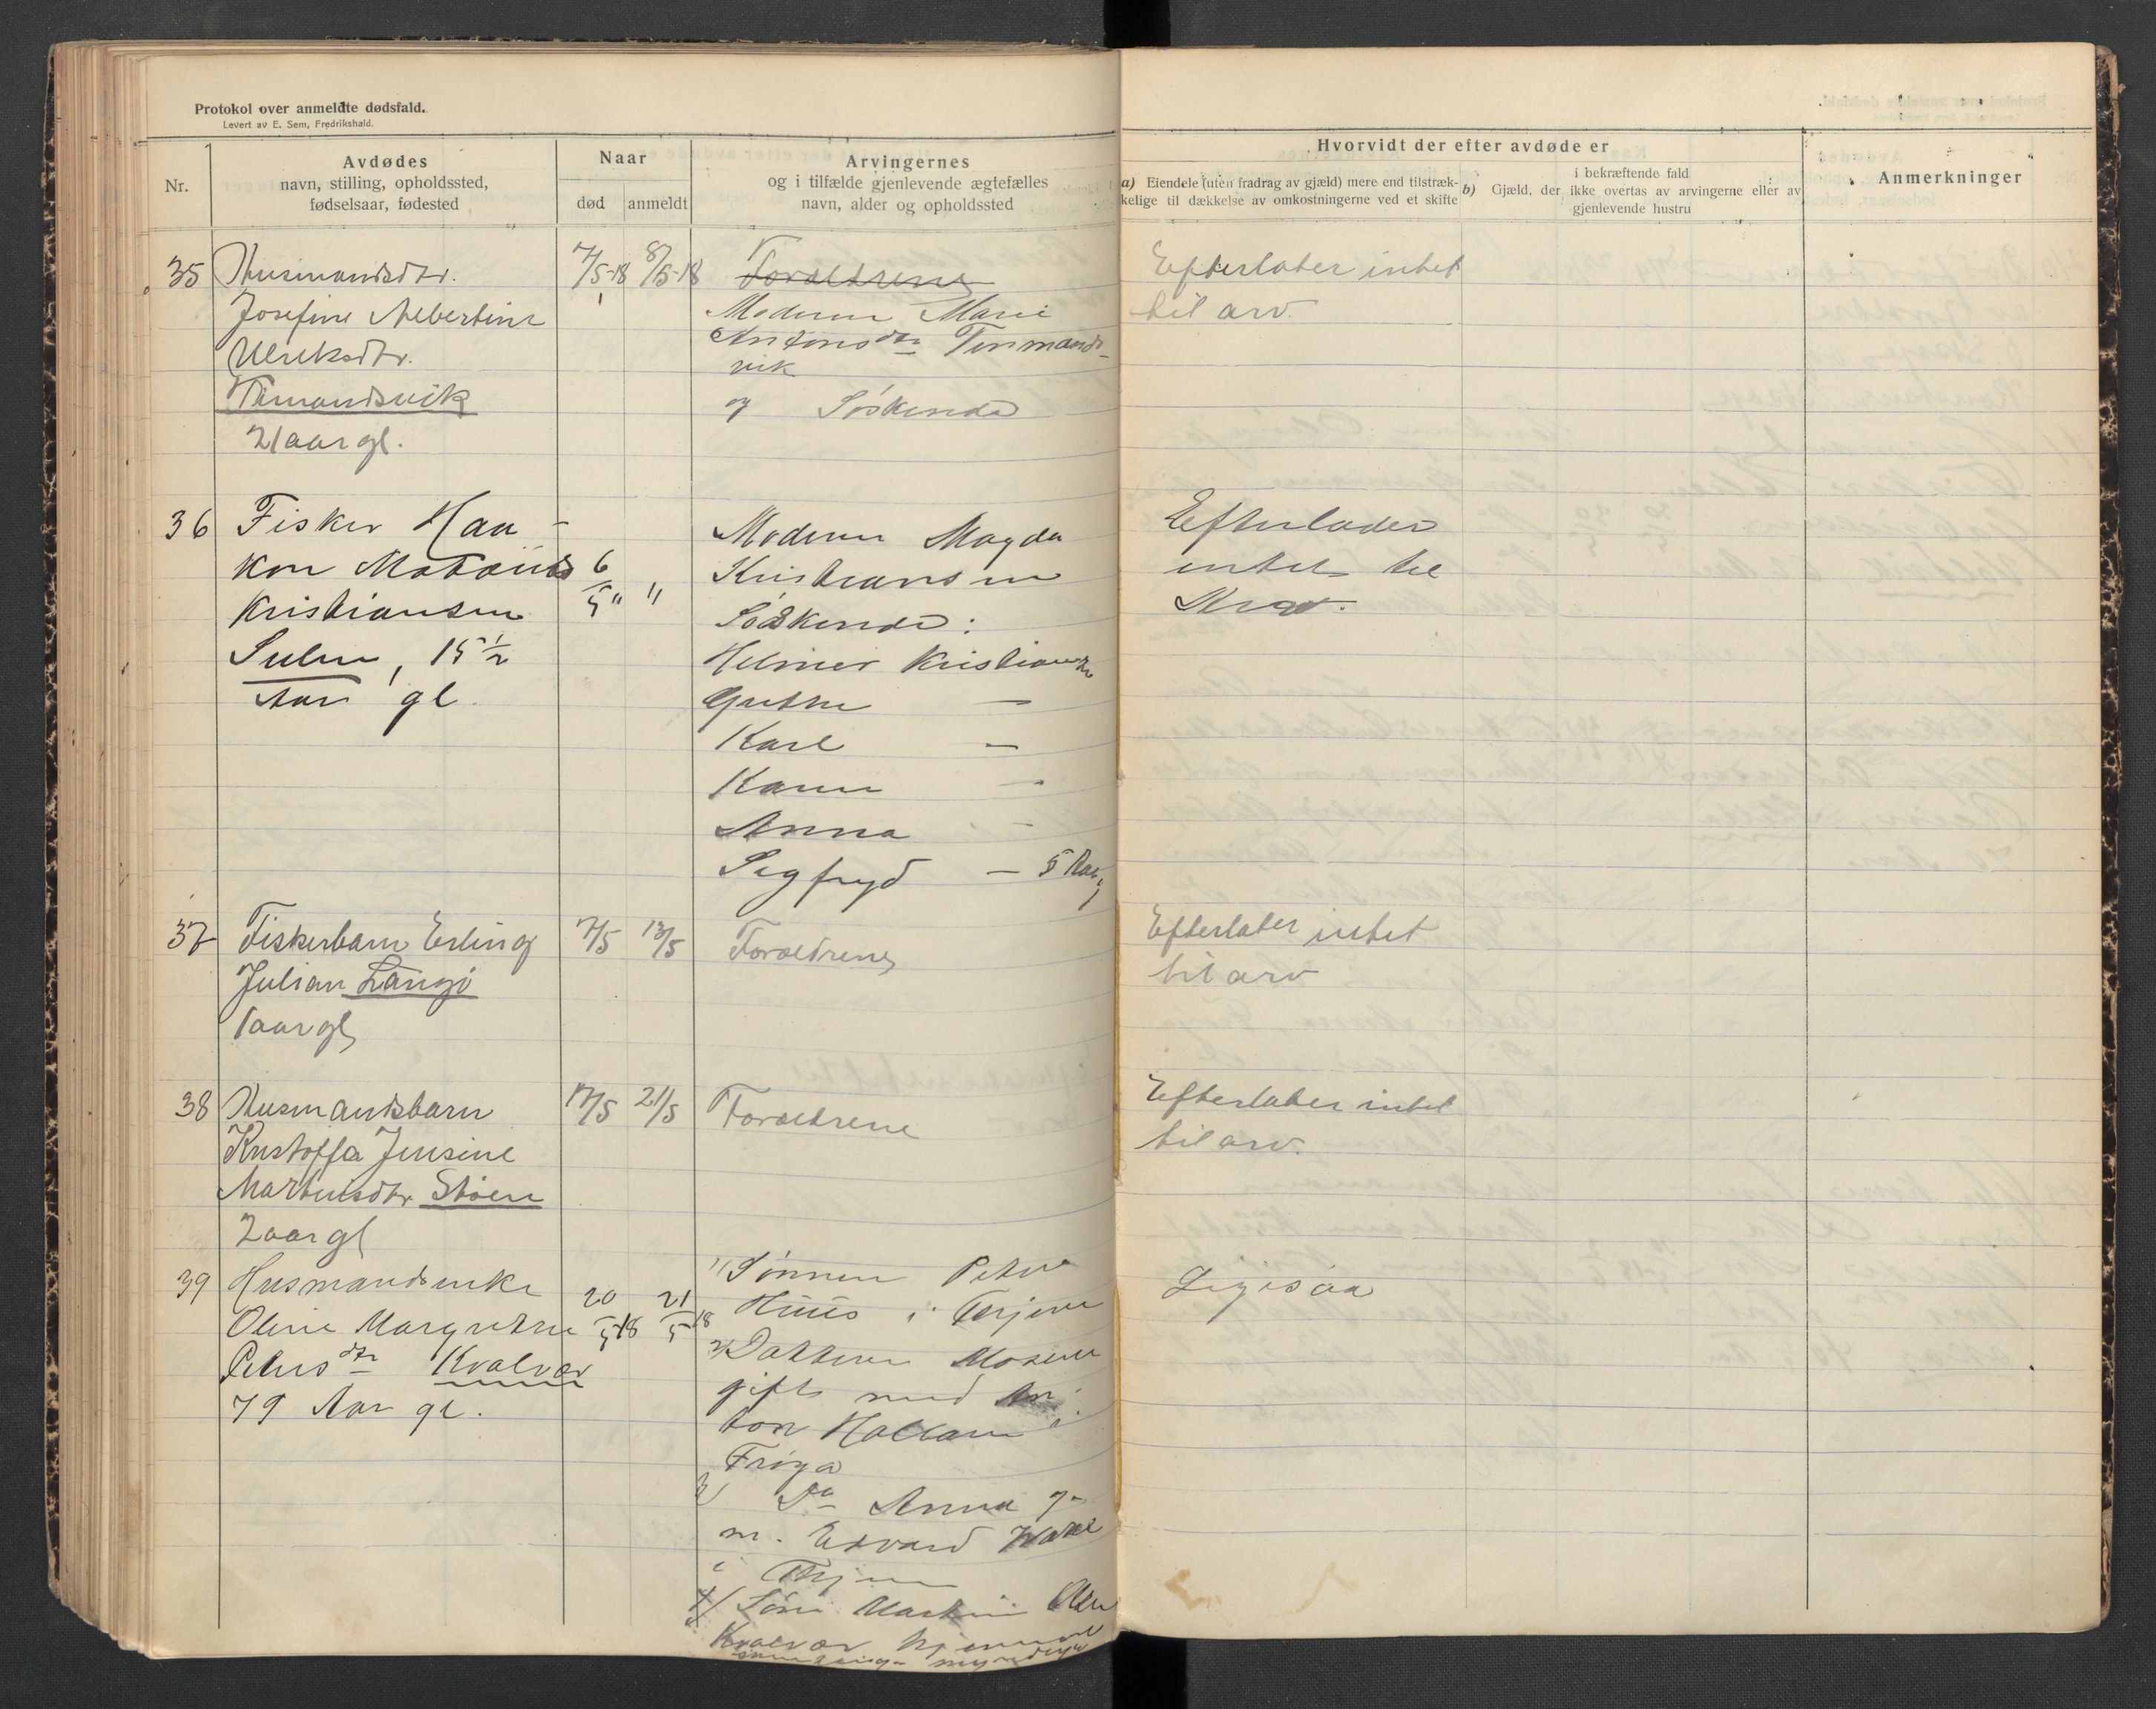 Protokol over anmeldte dødsfald.
Levert av E. Sem, Fredrikshald.
Nr.
Avdødes
navn, stilling, opholdssted,
fødselsaar, fødested
Naar
død
anmeldt
Arvingernes
og i tilfælde gjenlevende ægtefælles
navn, alder og opholdssted
Hvorvidt der efter avdøde er
a) Eiendele (uten fradrag av gjæld) mere end tilstræk-
kelige til dækkelse av omkostningerne ved et skifte
b) Gjæld, der i bekræftende fald
ikke overtas av arvingerne eller av
gjenlevende hustru
Anmerkninger
35 Husmandsdtr.
Josefine Albertine
Ulriksdtr.
21 aar gl.
7/5-18 8/5-18
Forældrene
Moderen Marie
Antonsdtr
vik
og Søskende
Efterlater intet
til arv.
36 Fisker Haa-
kon
Kristiansen
Sulen, 15 1/2
Aar gl.
6/5 " "
Moderen Magda
Kristiansen
Søskende:
Helmer Kristiansen
Karl —
Anna —
Sigfryd — 5 Aar
Efterlader
intet til
Arv.
37 Fiskerbarn Erling
Julian Langø
1 aar gl
7/5 13/5
Forældrene
Efterlater intet
til arv
38 Husmandsbarn
Kristoffa Jensine
Martinsdtr Støen
2 aar gl
17/5 21/5
Forældrene
Efterlater intet
til arv.
39 Husmandsenke
Oline Margrethe
Petersdtr Kvalvær
79 Aar gl.
20/5 18 21/5 18
1/ Sønnen Peter
Huus i
2/ Datteren
gift med An-
ton
Frøya
3/ Do Anna g-
m. Edvard
i
4/ Søn Martin Olsen
Kvalvær
Ligesaa